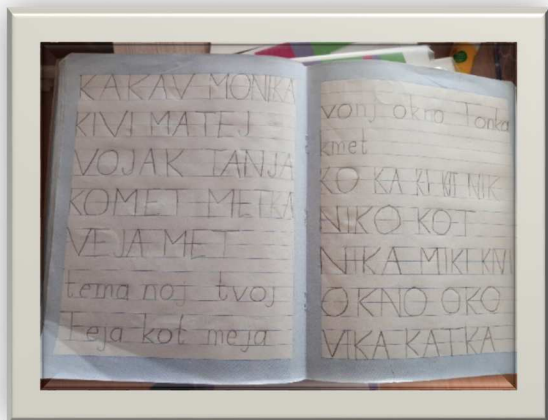 KAKAV MONIKA
KIVI MATEJ
VOJAK TANJA
KOMET METKA
VEJA MET
tema noj tvoj
Teja kot meja
vonj okno Tonka
kmet
KO KA KI KIT NIK
NIKO KOT
NIKA MIKI KIVI
OKNO OKO
VIKA KATKA